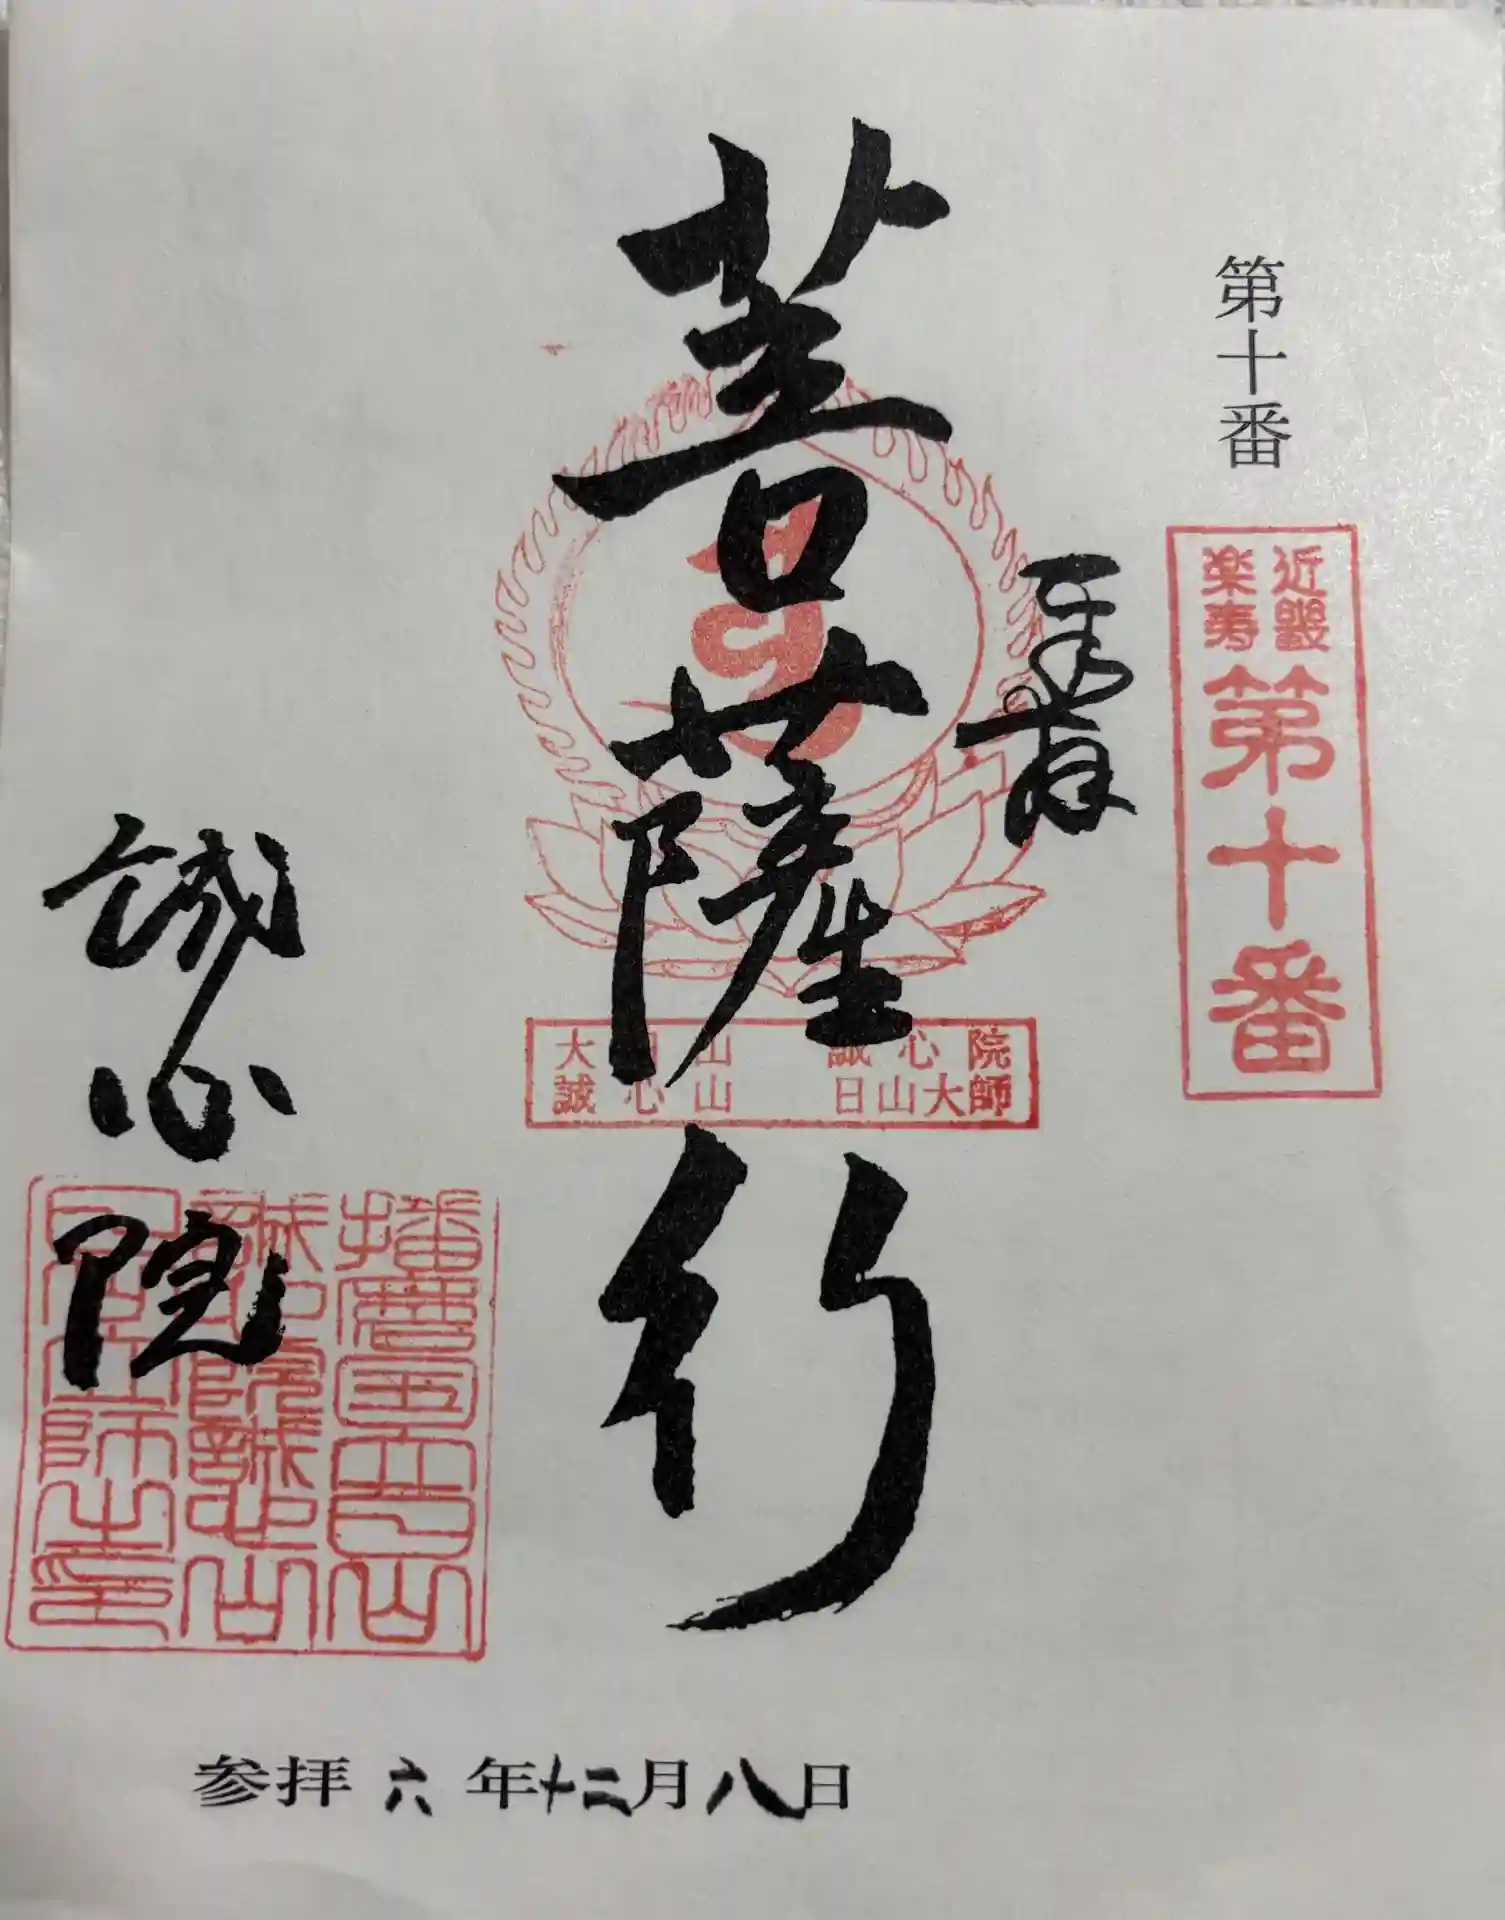 第十番
近畿
楽寿
第十番
奉拝
菩薩行
大日山 誠心院
誠心山 日山大師
誠心院
播磨国大日山
誠心院誠心山
参拝六年十二月八日